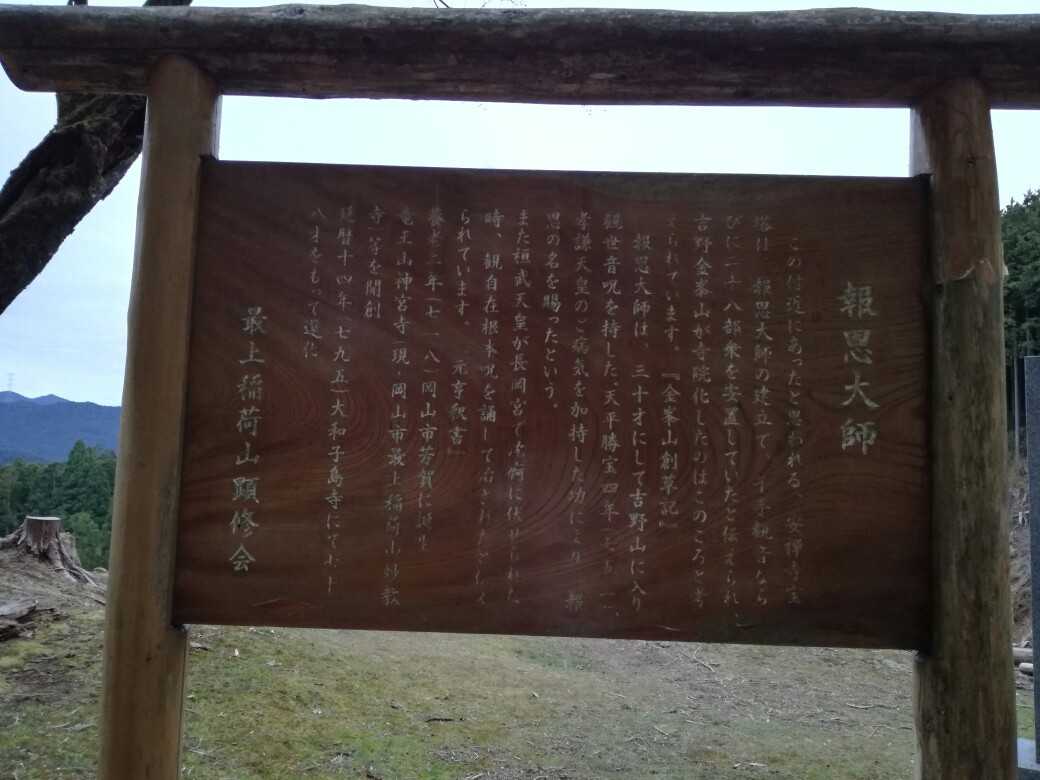 報恩大師
この付近にあったと思われる、安禅寺宝
塔は 報恩大師の建立で 千手観音なら
びに二十八部衆を安置していたと伝えられ、
吉野金峯山が寺院化したのはこのころと考
えられています。『金峯山創草記』
報恩大師は、三十才にして吉野山に入り
観世音呪を持した、天平勝宝四年(七五二)、
孝謙天皇のご病気を加持した功により 報
恩の名を賜ったという。
また桓武天皇が長岡宮で ご病に伏せられた
時、観自在根本呪を誦して
られています。 『元亨釈書』
養老二年(七一八)岡山市芳賀に誕生
竜王山神宮寺(現・岡山市最上稲荷山妙教
寺)等を開創
延暦十四年(七九五)大和子島寺にて七十
八才をもって遷化
最上稲荷山顕修会